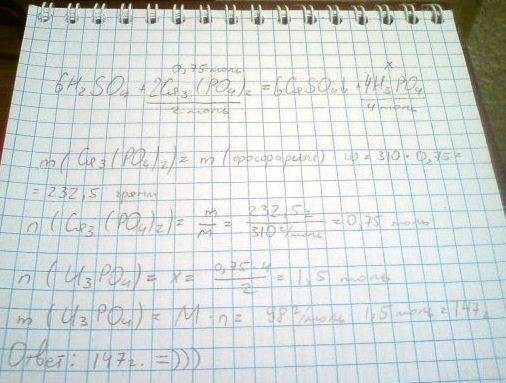 0,75 моль x
6H₂SO₄ + 2Ca₃(PO₄)₂ = 6CaSO₄↓ + 4H₃PO₄
2 моль 4 моль
m(Ca₃(PO₄)₂) = m(фосфорита) · ω = 310 · 0,75 =
= 232,5 грамм
n(Ca₃(PO₄)₂) = m/M = 232,5 г / 310 г/моль = 0,75 моль
n(H₃PO₄) = x = 0,75·4 / 2 = 1,5 моль
m(H₃PO₄) = M · n = 98 г/моль · 1,5 моль = 147 г
Ответ: 147 г. =)))